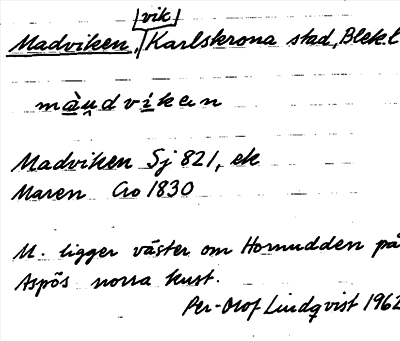 vik
Madviken, Karlskrona stad, Blek.l
màu̯dvikan
Madviken Sj 821, ek
Maren Go 1830
M. ligger väster om Hornudden på
Aspös norra kust.
Per-Olof Lindqvist 1962